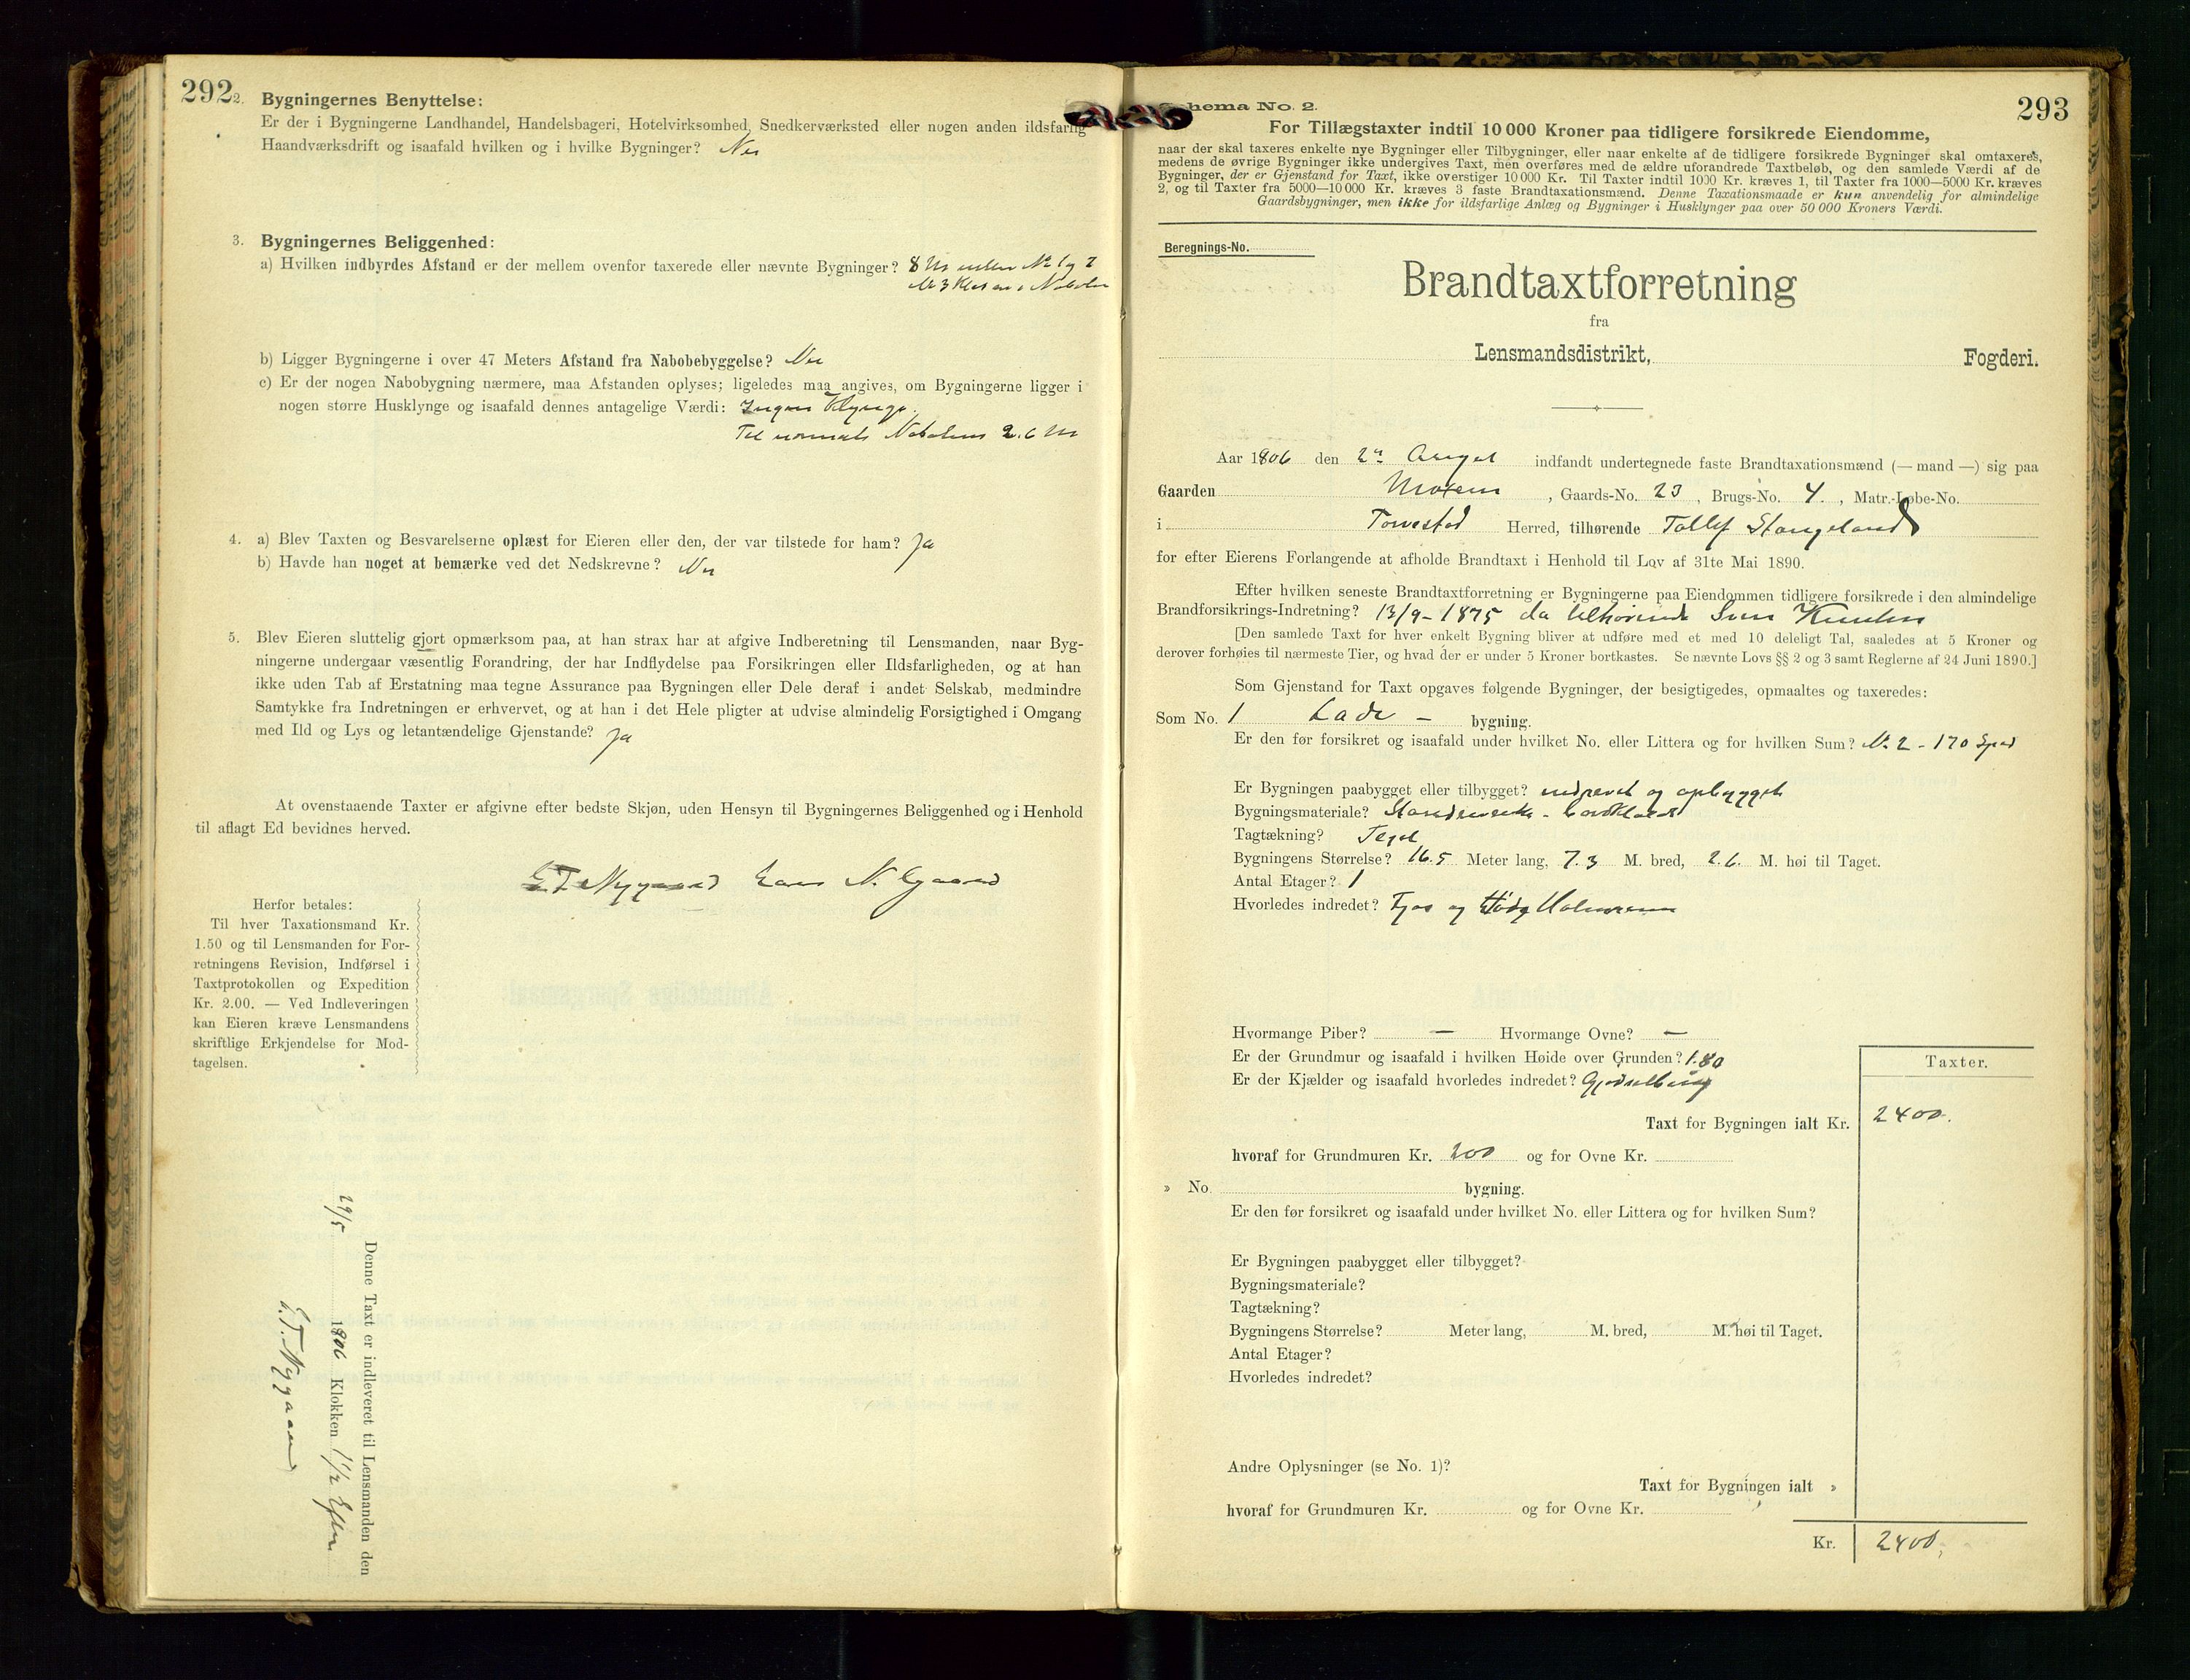 292
2. Bygningernes Benyttelse:
Er der i Bygningerne Landhandel, Handelsbageri, Hotelvirksomhed, Snedkerværksted eller nogen anden ildsfarlig
Haandværksdrift og isaafald hvilken og i hvilke Bygninger? Nei
3. Bygningernes Beliggenhed:
a) Hvilken indbyrdes Afstand er der mellem ovenfor taxerede eller nævnte Bygninger? 8 M mellem No 1 og 2
No 3
b) Ligger Bygningerne i over 47 Meters Afstand fra Nabobebyggelse? Nei
c) Er der nogen Nabobygning nærmere, maa Afstanden oplyses; ligeledes maa angives, om Bygningerne ligger i
nogen større Husklynge og isaafald dennes antagelige Værdi: Ingen Klynge.
Til nærmeste Nabohus 2.6 M
4. a) Blev Taxten og Besvarelserne oplæst for Eieren eller den, der var tilstede for ham? Ja
b) Havde han noget at bemærke ved det Nedskrevne? Nei
5. Blev Eieren sluttelig gjort opmærksom paa, at han strax har at afgive Indberetning til Lensmanden, naar Byg-
ningerne undergaar væsentlig Forandring, der har Indflydelse paa Forsikringen eller Ildsfarligheden, og at han
ikke uden Tab af Erstatning maa tegne Assurance paa Bygningen eller Dele deraf i andet Selskab, medmindre
Samtykke fra Indretningen er erhvervet, og at han i det Hele pligter at udvise almindelig Forsigtighed i Omgang
med Ild og Lys og letantændelige Gjenstande? Ja
At ovenstaaende Taxter er afgivne efter bedste Skjøn, uden Hensyn til Bygningernes Beliggenhed og i Henhold
til aflagt Ed bevidnes herved.
E T Nygaard Lars N.
Herfor betales:
Til hver Taxationsmand Kr.
1.50 og til Lensmanden for For-
retningens Revision, Indførsel i
Taxtprotokollen og Expedition
Kr. 2.00. — Ved Indleveringen
kan Eieren kræve Lensmandens
skriftlige Erkjendelse for Mod-
tagelsen.
Denne Taxt er indleveret til Lensmanden den
29/5 1906 Klokken 1 1/2 Efterm
E.T. Nygaard
293
hema No. 2.
For Tillægstaxter indtil 10 000 Kroner paa tidligere forsikrede Eiendomme,
naar der skal taxeres enkelte nye Bygninger eller Tilbygninger, eller naar enkelte af de tidligere forsikrede Bygninger skal omtaxeres,
medens de øvrige Bygninger ikke undergives Taxt, men overføres med de ældre uforandrede Taxtbeløb, og den samlede Værdi af de
Bygninger, der er Gjenstand for Taxt, ikke overstiger 10 000 Kr. Til Taxter indtil 1000 Kr. kræves 1, til Taxter fra 1000—5000 Kr. kræves
2, og til Taxter fra 5000—10 000 Kr. kræves 3 faste Brandtaxationsmænd. Denne Taxationsmaade er kun anvendelig for almindelige
Gaardsbygninger, men ikke for ildsfarlige Anlæg og Bygninger i Husklynger paa over 50 000 Kroners Værdi.
Beregnings-No.
Brandtaxtforretning
fra
Lensmandsdistrikt, Fogderi.
Aar 1906 den 2n August indfandt undertegnede faste Brandtaxationsmænd (— mand —) sig paa
Gaarden , Gaards-No. 23 , Brugs-No. 4. , Matr.-Løbe-No.
i Torvestad Herred, tilhørende Tollef Stangeland
for efter Eierens Forlangende at afholde Brandtaxt i Henhold til Lov af 31te Mai 1890.
Efter hvilken seneste Brandtaxtforretning er Bygningerne paa Eiendommen tidligere forsikrede i den almindelige
Brandforsikrings-Indretning? 13/9-1875 da tilhørende Sven Knudsen
[Den samlede Taxt for hver enkelt Bygning bliver at udføre med et med 10 deleligt Tal, saaledes at 5 Kroner og
derover forhøies til nærmeste Tier, og hvad der er under 5 Kroner bortkastes. Se nævnte Lovs §§ 2 og 3 samt Reglerne af 24 Juni 1890.]
Som Gjenstand for Taxt opgaves følgende Bygninger, der besigtigedes, opmaaltes og taxeredes:
Som No. 1 Lade - bygning.
Er den før forsikret og isaafald under hvilket No. eller Littera og for hvilken Sum? No 2 - 170 Spd
Er Bygningen paabygget eller tilbygget? nedrevet og opbygget
Bygningsmateriale? Standerverk - bordklædt
Tagtækning? Tegel
Bygningens Størrelse? 16.5 Meter lang, 7.3 M. bred, 2.6. M. høi til Taget.
Antal Etager? 1
Hvorledes indredet? Fjøs og
Hvormange Piber? — Hvormange Ovne? —
Er der Grundmur og isaafald i hvilken Høide over Grunden? 1.80
Er der Kjælder og isaafald hvorledes indredet? Gjødselbing
Taxter.
Taxt for Bygningen ialt Kr. 2400.
hvoraf for Grundmuren Kr. 200 og for Ovne Kr.
» No. bygning.
Er den før forsikret og isaafald under hvilket No. eller Littera og for hvilken Sum?
Er Bygningen paabygget eller tilbygget?
Bygningsmateriale?
Tagtækning?
Bygningens Størrelse? Meter lang, M. bred, M. høi til Taget.
Antal Etager?
Hvorledes indredet?
Andre Oplysninger (se No. 1)?
Taxt for Bygningen ialt »
hvoraf for Grundmuren Kr. og for Ovne Kr.
Kr. 2400,